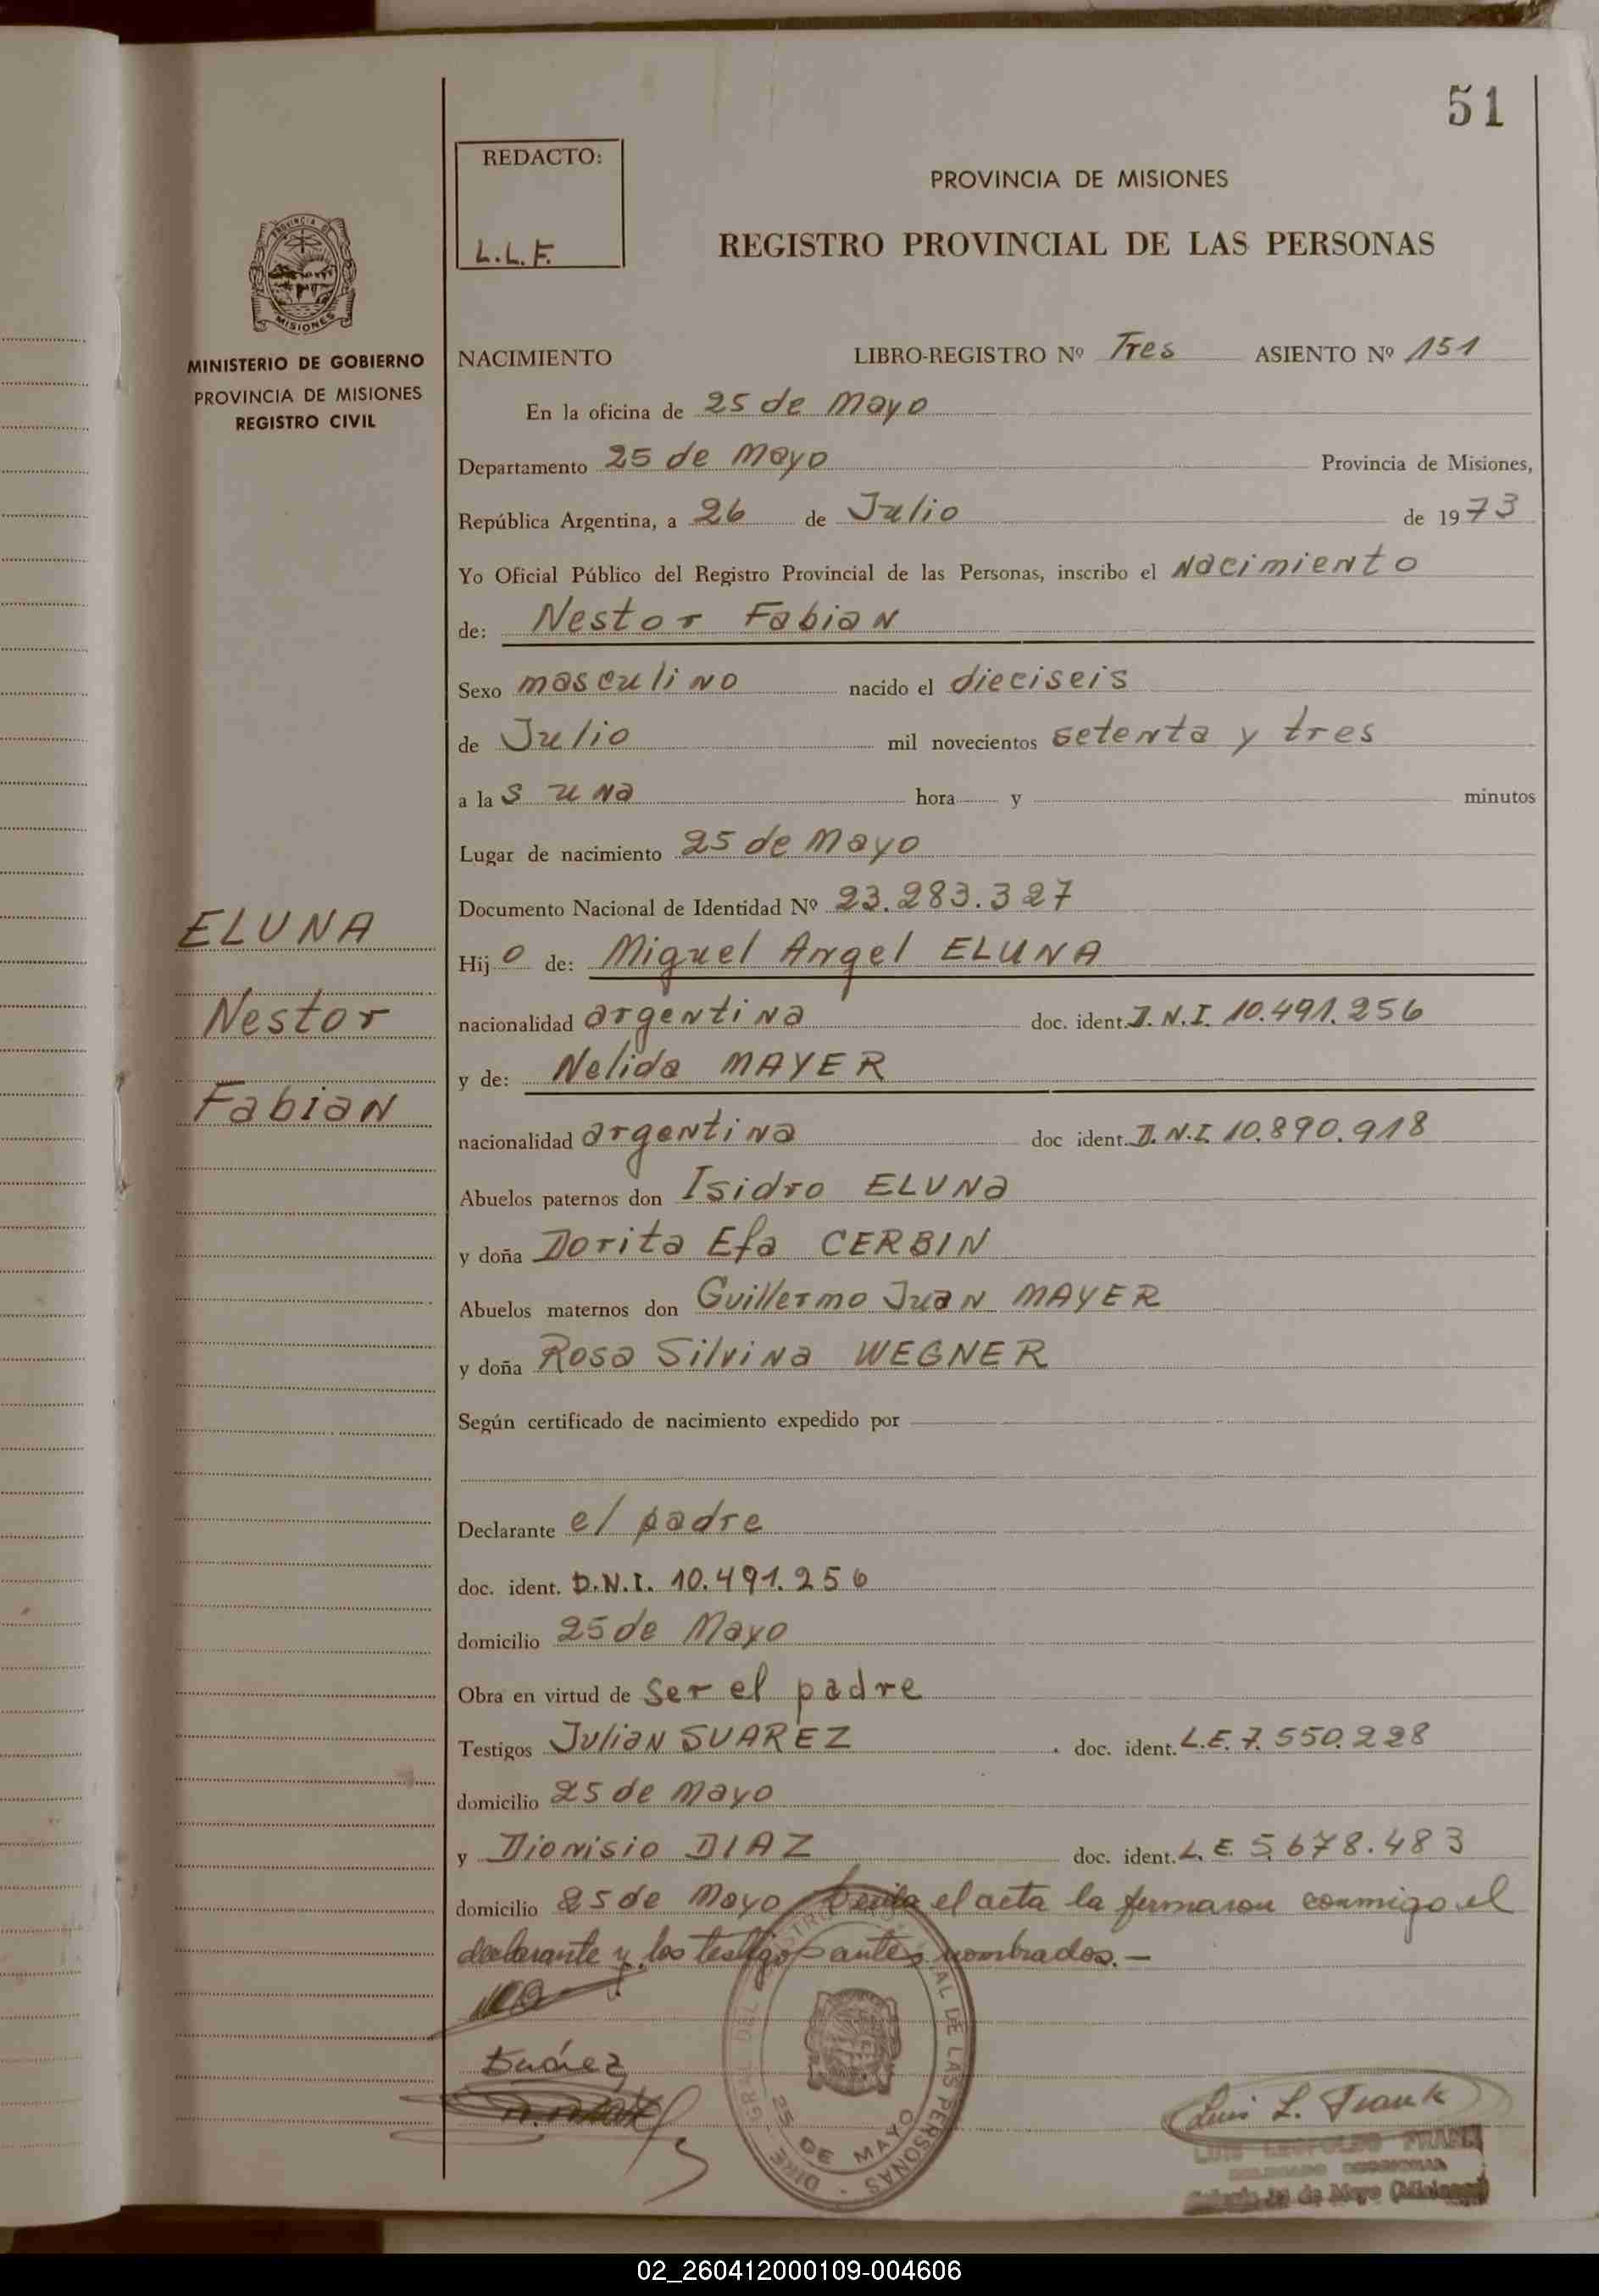 51
REDACTO:
L.L.F.
PROVINCIA DE MISIONES
REGISTRO PROVINCIAL DE LAS PERSONAS
MISIONES
MINISTERIO DE GOBIERNO
PROVINCIA DE MISIONES
REGISTRO CIVIL
NACIMIENTO LIBRO-REGISTRO Nº Tres ASIENTO Nº 151
En la oficina de 25 de Mayo
Departamento 25 de Mayo Provincia de Misiones,
República Argentina, a 26 de Julio de 1973
Yo Oficial Público del Registro Provincial de las Personas, inscribo el Nacimiento
de: Nestor Fabian
Sexo masculino nacido el dieciseis
de Julio mil novecientos setenta y tres
a las una hora y minutos
Lugar de nacimiento 25 de Mayo
Documento Nacional de Identidad Nº 23.283.327
ELUNA
Nestor
Fabian
Hijo de: Miguel Angel ELUNA
nacionalidad argentina doc. ident. D.N.I. 10.491.256
y de: Nelida MAYER
nacionalidad argentina doc ident. D.N.I. 10.890.918
Abuelos paternos don Isidro ELUNA
y doña Dorita Efa CERBIN
Abuelos maternos don Guillermo Juan MAYER
y doña Rosa Silvina WEGNER
Según certificado de nacimiento expedido por
Declarante el padre
doc. ident. D.N.I. 10.491.256
domicilio 25 de Mayo
Obra en virtud de ser el padre
Testigos Julian SUAREZ doc. ident. L.E. 7.550.228
domicilio 25 de Mayo
y Dionisio DIAZ doc. ident. L.E. 5.678.483
domicilio 25 de Mayo el acta la firmaron conmigo el
declarante y los testigos antes nombrados.—
Suárez
25 DE MAYO
AL DE LAS PERSONAS
Luis L. Frank
LUIS LEOPOLDO FRANK
de Mayo (Misiones)
02_260412000109-004606